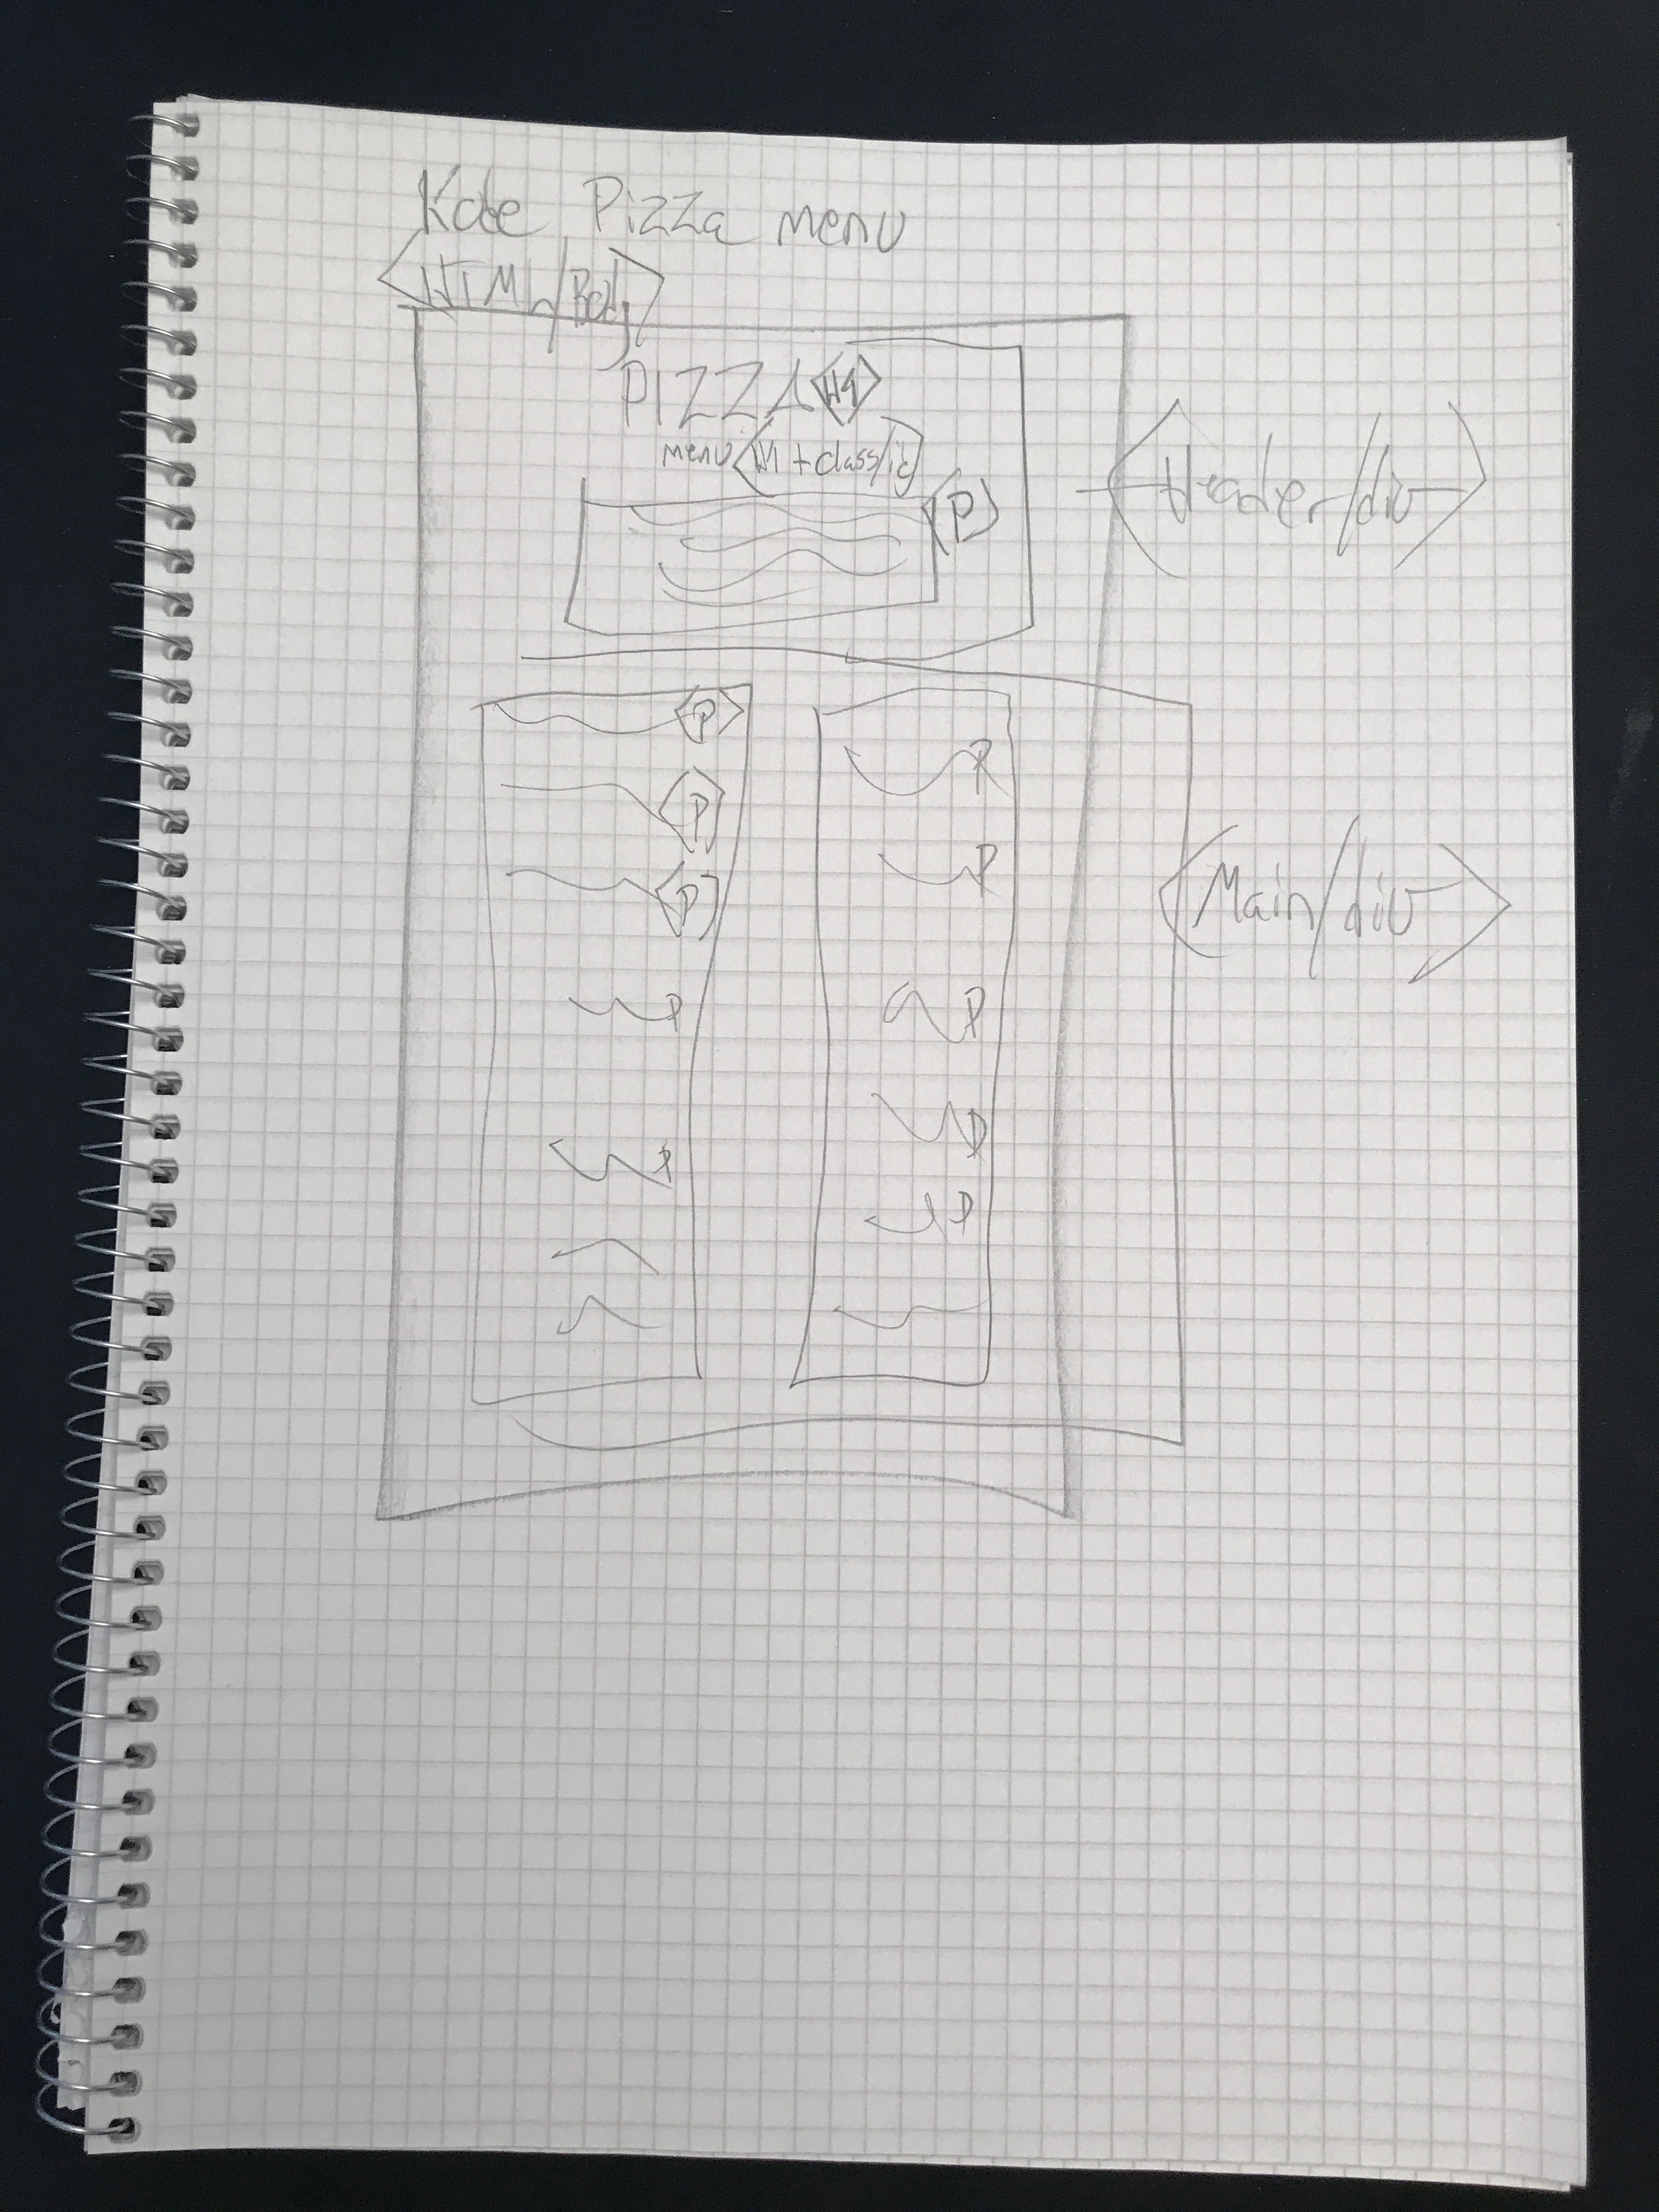 Kode Pizza menu
<HTML/Body>
PIZZA <H1>
menu <H1 + class/id>
<P>
<Header/div>
<P>
<P>
<P>
P
P
P
P
P
P
P
<Main/div>